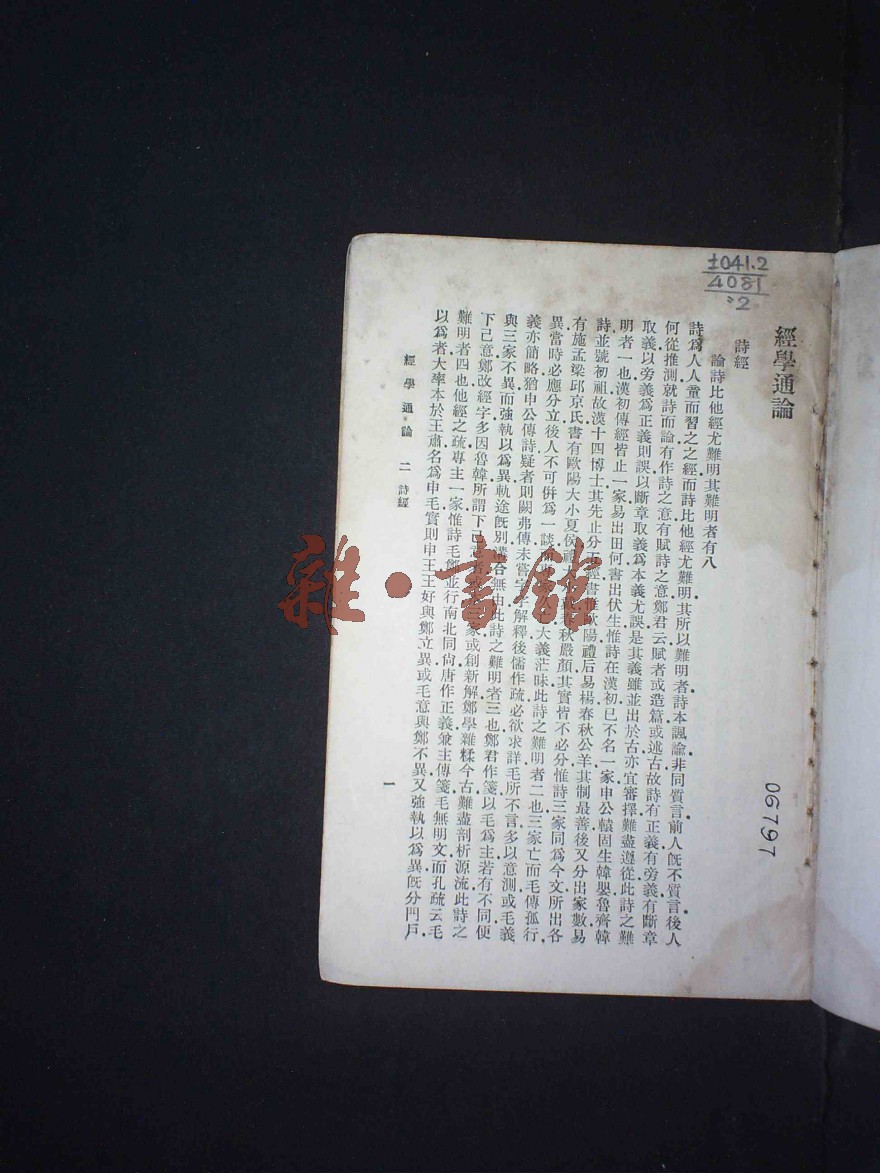 ±041.2
4081
:2
經學通論
詩經
論詩比他經尤難明其難明者有八
詩爲人人童而習之之經而詩比他經尤難明其所以難明者詩本諷諭非同質言前人旣不質言後人
何從推測就詩而論有作詩之意有賦詩之意鄭君云賦者或造篇或述古故詩有正義有旁義有斷章
取義以旁義爲正義則誤以斷章取義爲本義尤誤是其義雖並出於古亦宜審擇難盡遵從此詩之難
明者一也漢初傳經皆止一家易出田何書出伏生惟詩在漢初已不名一家申公轅固生韓嬰魯齊韓
詩並號初祖故漢十四博士其先止分五經書惟歐陽禮后易楊春秋公羊其制最善後又分出家數易
有施孟梁邱京氏書有歐陽大小夏侯禮大 秋嚴顏其實皆不必分惟詩三家同爲今文所出各
異當時必應分立後人不可倂爲一談 大義茫昧此詩之難明者二也三家亡而毛傳孤行
義亦簡略猶申公傳詩疑者則闕弗傳未嘗字字解釋後儒作疏必欲求詳毛所不言多以意測或毛義
與三家不異而強執以爲異軌途旣別溝合無由此詩之難明者三也鄭君作箋以毛爲主若有不同便
下己意鄭改經字多因魯韓所謂下己意者 家或創新解鄭學雜糅今古難盡剖析源流此詩之
難明者四也他經之疏專主一家惟詩毛鄭並行南北同尙唐作正義兼主傳箋毛無明文而孔疏云毛
以爲者大率本於王肅名爲申毛實則申王王好與鄭立異或毛意與鄭不異又強執以爲異旣分門戶
經學通論 二 詩經
一
06797
雜·書館